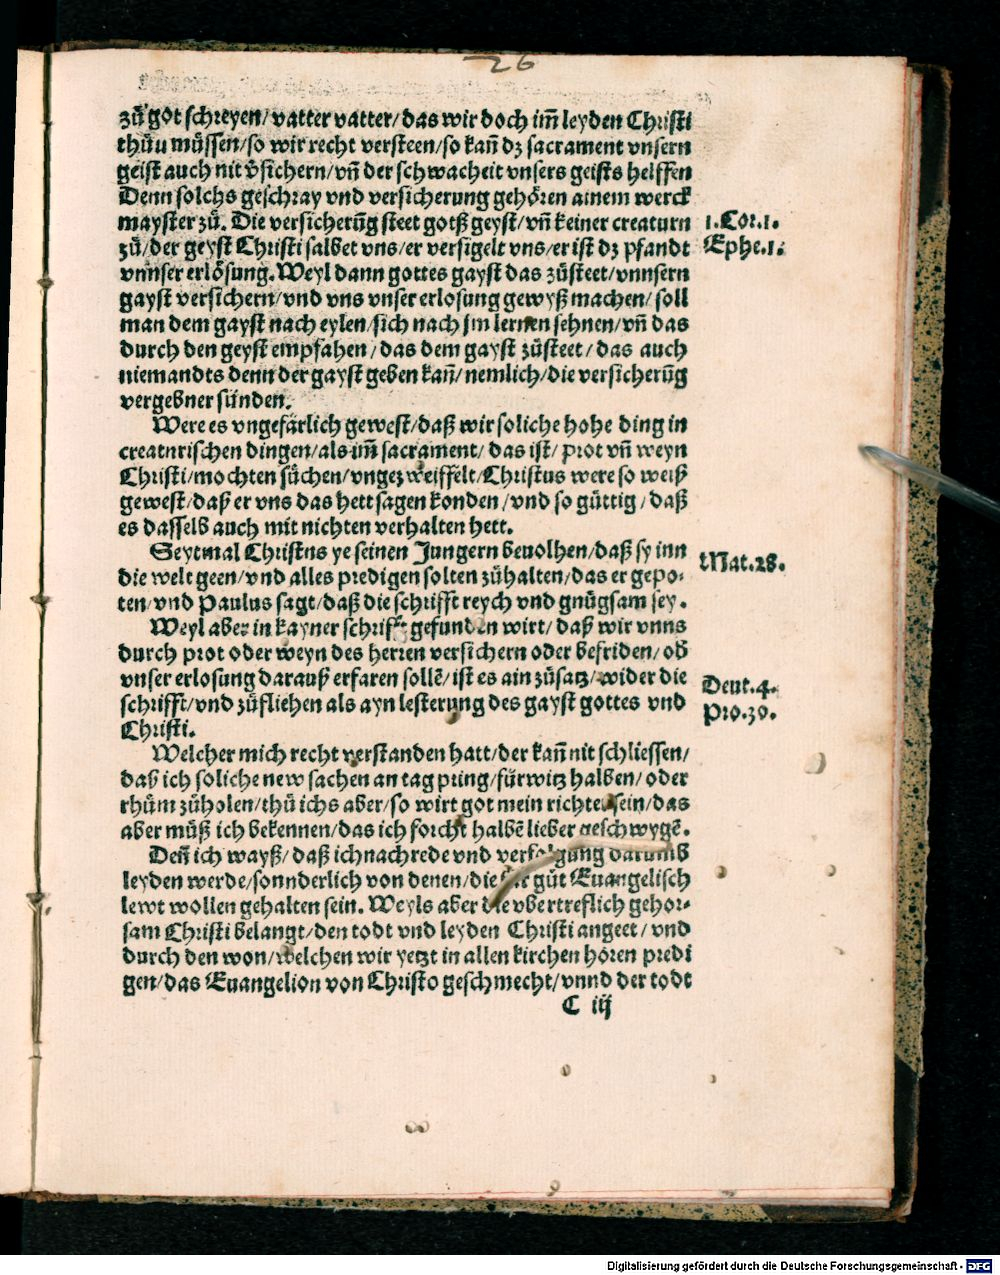 26
zů got schreyen/ vatter vatter/ das wir doch im̃ leyden Christi
thůn müssen/ so wir recht versteen/ so kañ dz sacrament vnsern
geist auch nit v̈sichern/ vñ der schwacheit vnsers geists helffen
Denn solchs geschray vnd versicherung gehören ainem werck
mayster zů. Die versicherũg steet gotß geyst/ vñ keiner creaturn
1. Cor. 1.
zů/ der geyst Christi salbet vns/ er versigelt vns/ er ist dz pfandt
Ephe. 1.
vnnser erlösung. Weyl dann gottes gayst das zůsteet/ vnnsern
gayst versichern/ vnd vns vnser erlosung gewyß machen/ soll
man dem gayst nach eylen/ sich nach jm lernen sehnen/ vñ das
durch den geyst empfahen/ das dem gayst zůsteet/ das auch
niemandts denn der gayst geben kañ/ nemlich/ die versicherũg
vergebner sünden.
Were es vngefärlich gewest/ daß wir soliche hohe ding in
creatnrischen dingen/ als im̃ sacrament/ das ist/ prot vñ weyn
Christi/ mochten sůchen/ vngezweiffelt/ Christus were so weiß
gewest/ daß er vns das hett sagen konden/ vnd so güttig/ daß
es dasselb auch mit nichten verhalten hett.
Seytmal Christus ye seinen Jungern beuolhen/ daß sy inn
Mat. 28.
die welt geen/ vnd alles predigen solten zůhalten/ das er gepo-
ten/ vnd Paulus sagt/ daß die schrifft reych vnd gnůgsam sey.
Weyl aber in kayner schrifft gefunden wirt/ daß wir vnns
durch prot oder weyn des herren versichern oder befriden/ ob
vnser erlosung darauß erfaren sollẽ/ ist es ain zůsatz/ wider die
Deut. 4.
schrifft/ vnd zůfliehen als ayn lesterung des gayst gottes vnd
Pro. 30.
Christi.
Welcher mich recht verstanden hatt/ der kañ nit schliessen/
das ich soliche new sachen an tag pring/ fürwitz halben/ oder
rhům zůholen/ thů ichs aber/ so wirt got mein richter sein/ das
aber můß ich bekennen/ das ich forcht halbẽ lieber geschwygẽ.
Deñ ich wayß/ daß ich nachrede vnd verfolgung darumb
leyden werde/ sonnderlich von denen/ die gůt Euangelisch
lewt wollen gehalten sein. Weyls aber die vbertreflich gehor-
sam Christi belangt/ den todt vnd leyden Christi angeet/ vnd
durch den won/ welchen wir yetzt in allen kirchen hören predi
gen/ das Euangelion von Christo geschmecht/ vnnd der todt
C iij
Digitalisierung gefördert durch die Deutsche Forschungsgemeinschaft - DFG